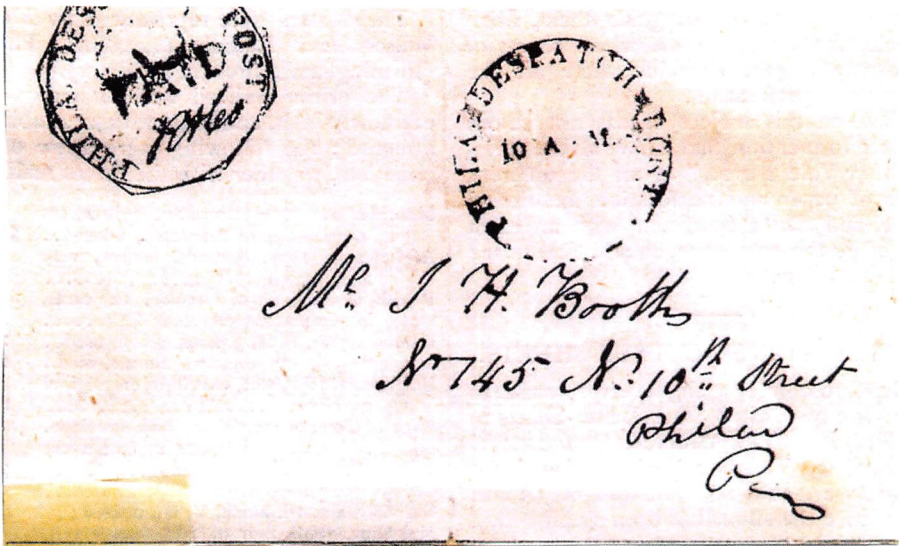 PHILA DES POST
PAID
PHILA DESPATCH POST
10 A.M.
Mr. J H. Booth
No 745 N. 10th Street
Phila
Pa